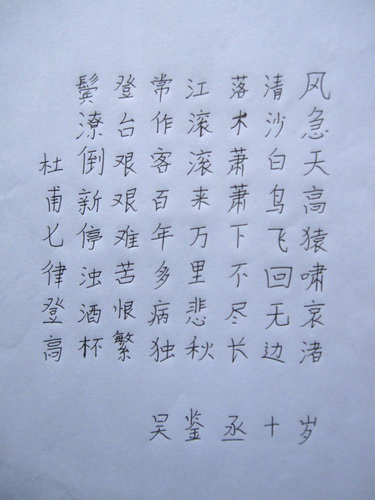 风急天高猿啸哀渚
清沙白鸟飞回无边
落木萧萧下不尽长
江滚滚来万里悲秋
常作客百年多病独
登台艰艰难苦恨繁
鬓潦倒新停浊酒杯
杜甫七律登高
吴鉴丞十岁